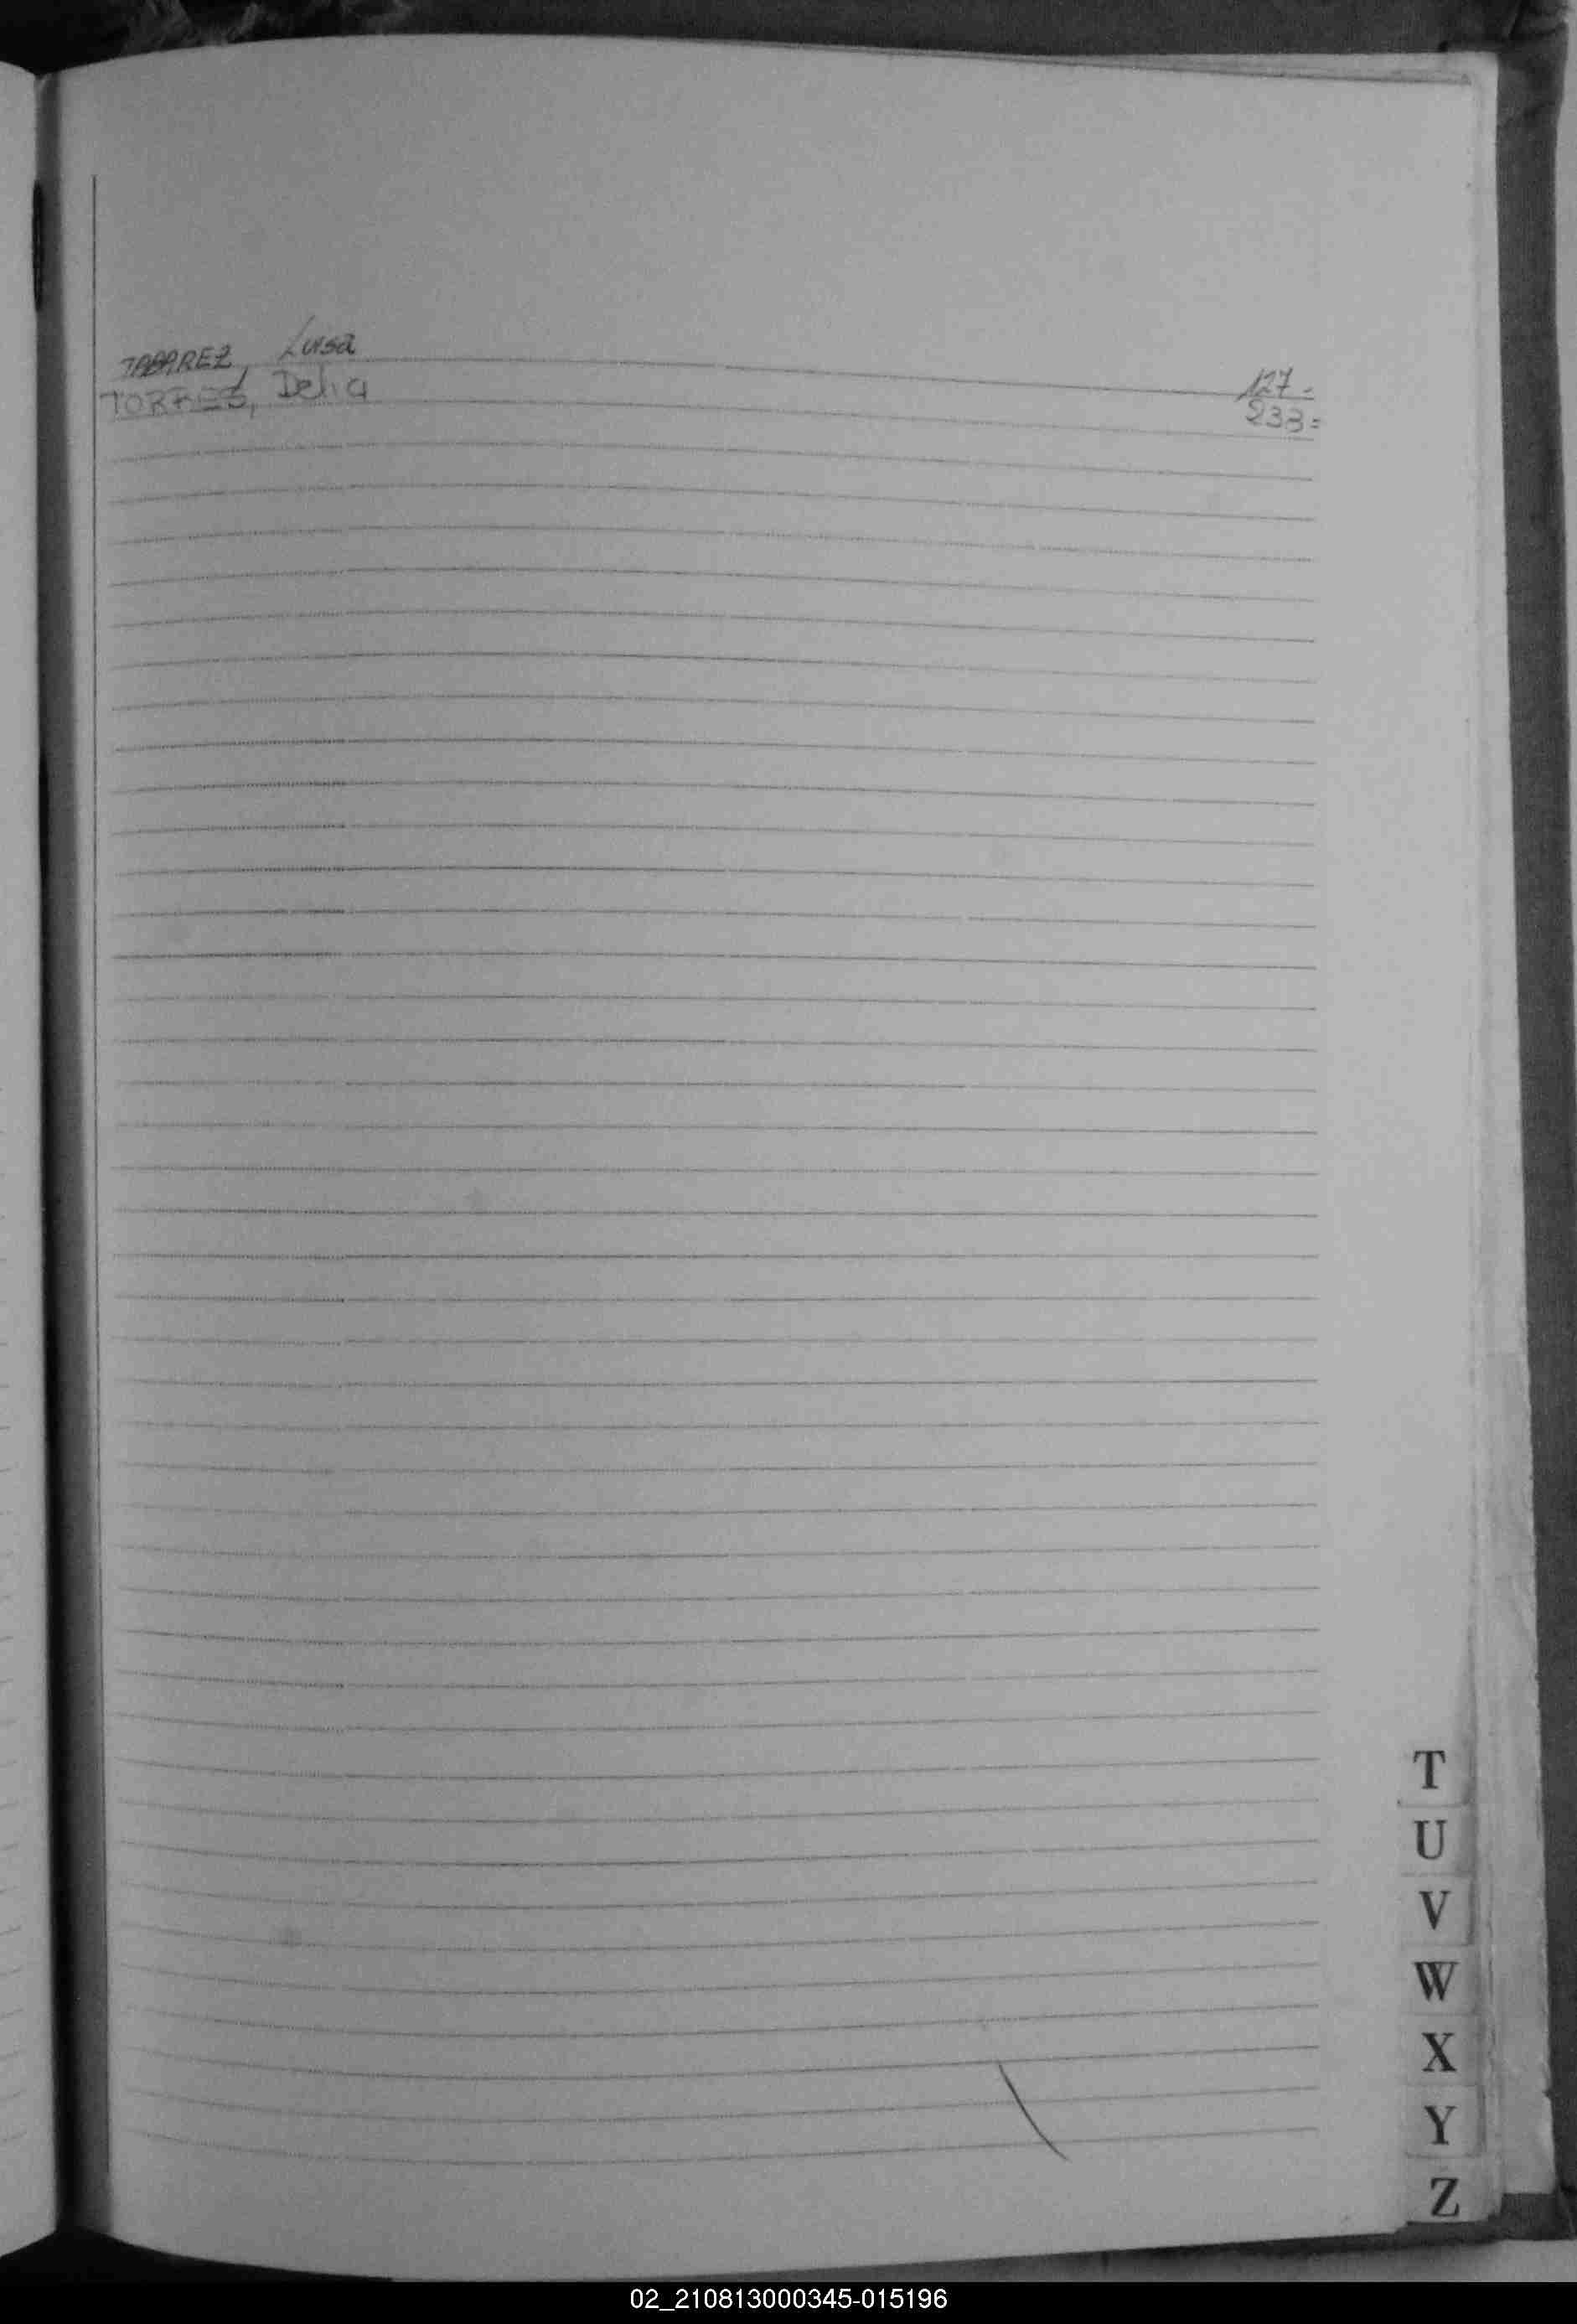 TABAREZ, Luisa 127-
TORRES, Delia 233=
T
U
V
W
X
Y
Z
02_210813000345-015196